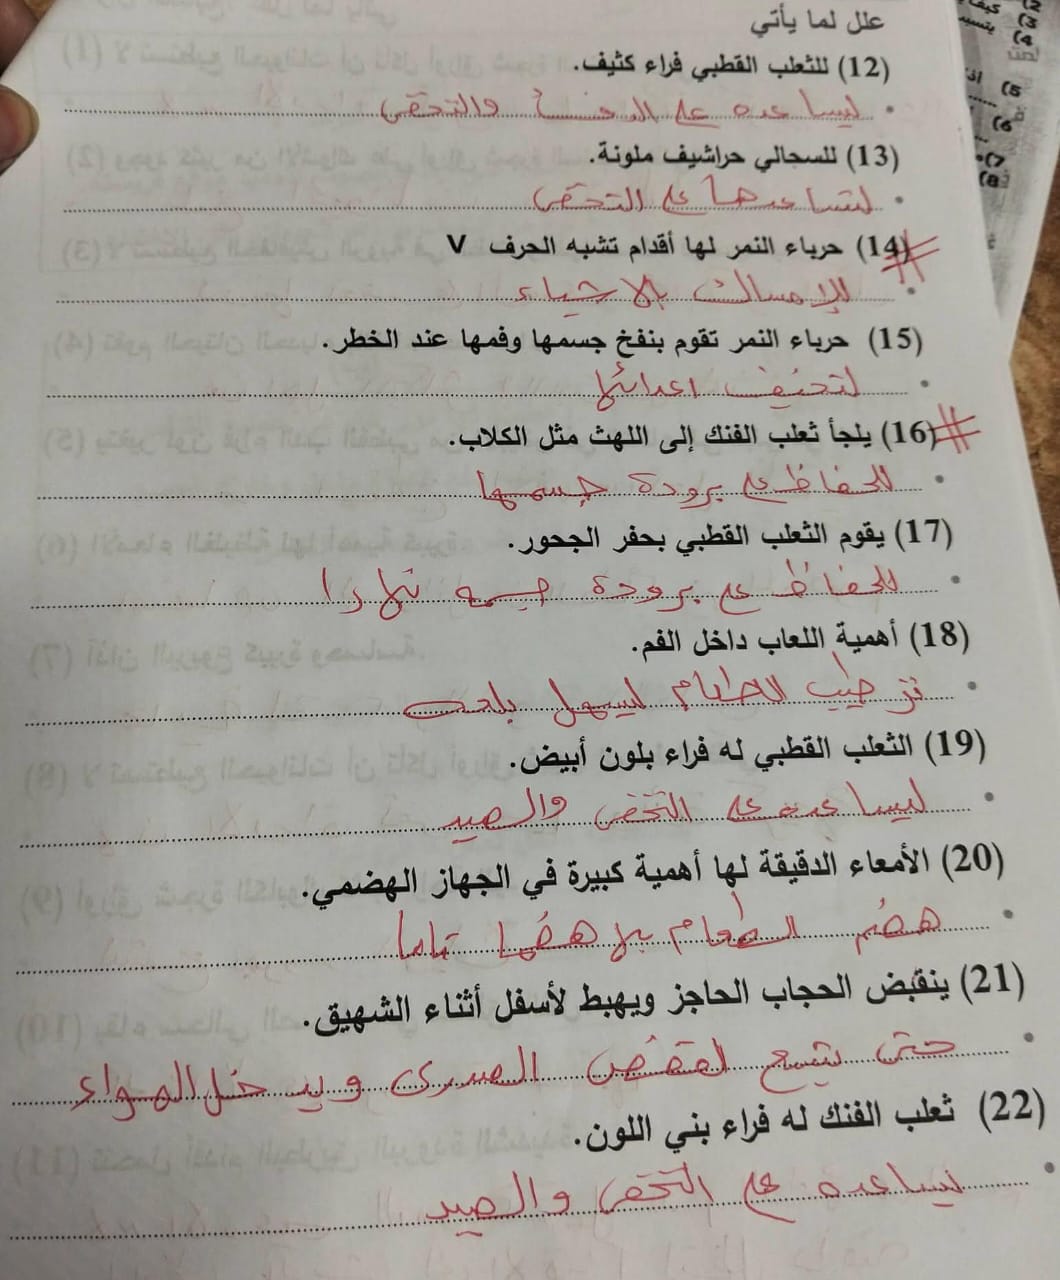 علل لما يأتي
(12) للثعلب القطبي فراء كثيف.
ليساعده على الدفئ والتخفى
(13) للسحالي حراشيف ملونة.
لتساعدها على التخفى
(14) حرباء النمر لها أقدام تشبه الحرف V
للإمساك بالاشياء
(15) حرباء النمر تقوم بنفخ جسمها وفمها عند الخطر.
لتخيف اعدائها
(16) يلجأ ثعلب الفنك إلى اللهث مثل الكلاب.
للحفاظ على برودة جسمها
(17) يقوم الثعلب القطبي بحفر الجحور.
للحفاظ على برودة جسمه نهارا
(18) أهمية اللعاب داخل الفم.
ترطيب الطعام ليسهل بلعه
(19) الثعلب القطبي له فراء بلون أبيض.
ليساعده على التخفى والصيد
(20) الأمعاء الدقيقة لها أهمية كبيرة في الجهاز الهضمي.
هضم الطعام بها هضما تاما
(21) ينقبض الحجاب الحاجز ويهبط لأسفل أثناء الشهيق.
حتى يتسع القفص الصدرى ويدخل الهواء
(22) ثعلب الفنك له فراء بني اللون.
ليساعده على التخفى والصيد